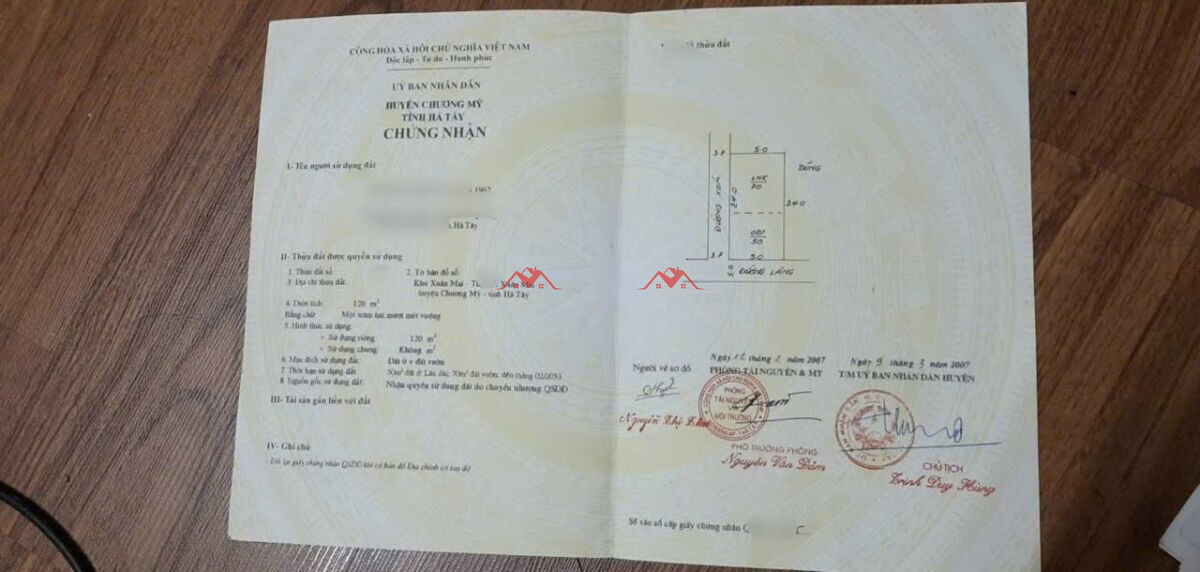 CỘNG HÒA XÃ HỘI CHỦ NGHĨA VIỆT NAM
Độc lập - Tự do - Hạnh phúc
UỶ BAN NHÂN DÂN
HUYỆN CHƯƠNG MỸ
TỈNH HÀ TÂY
CHỨNG NHẬN
I- Tên người sử dụng đất
1962
Hà Tây
II- Thửa đất được quyền sử dụng
1. Thửa đất số
2. Tờ bản đồ số:
3. Địa chỉ thửa đất:
Khu Xuân Mai - Xuân Mai
huyện Chương Mỹ - tỉnh Hà Tây
4. Diện tích: 120 m²
Bằng chữ Một trăm hai mươi mét vuông
5. Hình thức sử dụng:
+ Sử dụng riêng: 120 m²
+ Sử dụng chung: Không m²
6. Mục đích sử dụng đất: Đất ở + đất vườn
7. Thời hạn sử dụng đất: 50m² đất ở Lâu dài; 70m² đất vườn đến tháng 02/2053
8. Nguồn gốc sử dụng đất: Nhận quyền sử dụng đất do chuyển nhượng QSDĐ
III- Tài sản gắn liền với đất
IV- Ghi chú
- Đổi lại giấy chứng nhận QSDĐ khi có bản đồ Địa chính có toạ độ
thửa đất
3.7
5.0
DŨNG
LNK
70
24.0
24.0
ĐƯỜNG XÓM
ODT
50
3.7
5.0
5.0
ĐƯỜNG LÀNG
Ngày 12 tháng 2 năm 2007
Ngày 9 tháng 3 năm 2007
Người vẽ sơ đồ
PHÒNG TÀI NGUYÊN & MT
T/M UỶ BAN NHÂN DÂN HUYỆN
PHÒNG
TÀI NGUYÊN
VÀ
MÔI TRƯỜNG
Nguyễn Thị
PHÓ TRƯỞNG PHÒNG
Nguyễn Văn Dảm
CHỦ TỊCH
Trịnh Duy Hùng
Số vào sổ cấp giấy chứng nhận